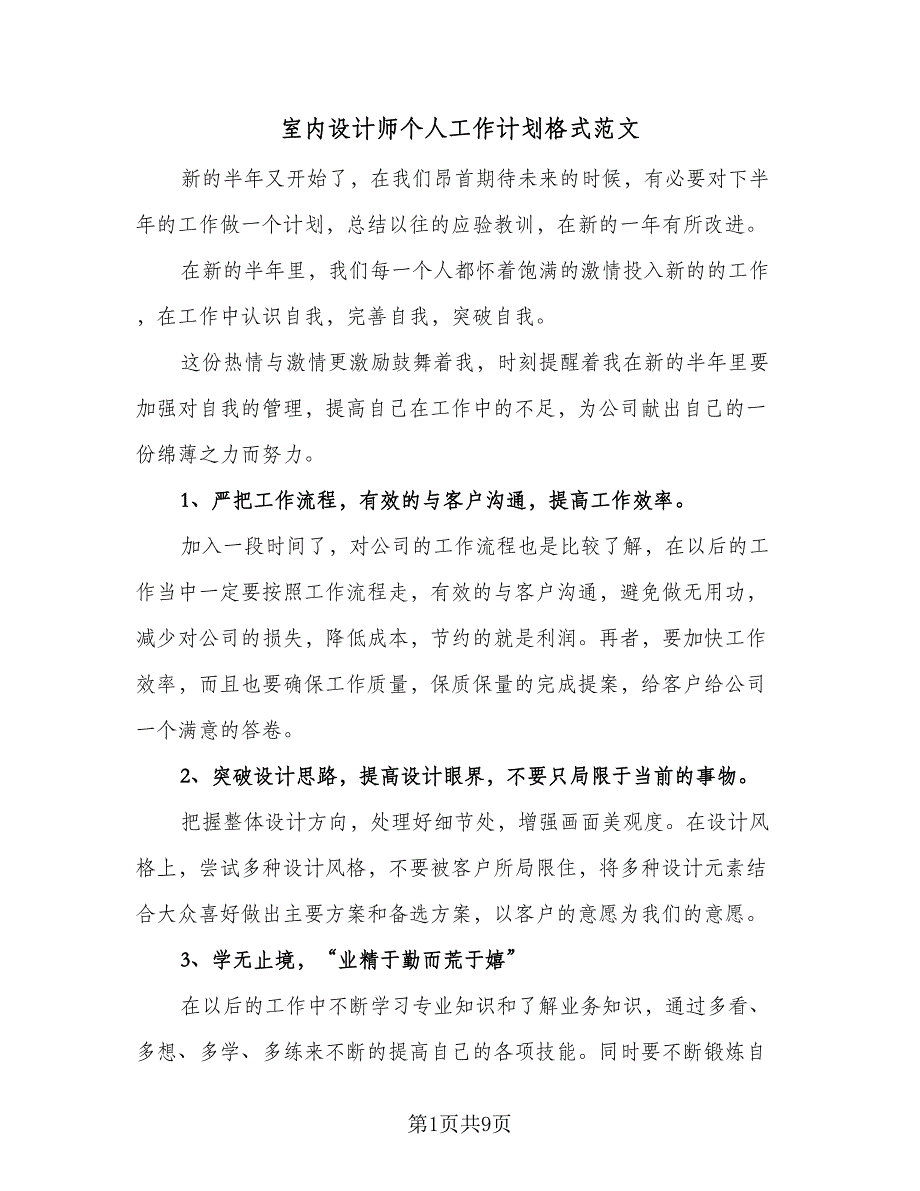 室内设计师个人工作计划格式范文
新的半年又开始了，在我们昂首期待未来的时候，有必要对下半
年的工作做一个计划，总结以往的应验教训，在新的一年有所改进。
在新的半年里，我们每一个人都怀着饱满的激情投入新的的工作
，在工作中认识自我，完善自我，突破自我。
这份热情与激情更激励鼓舞着我，时刻提醒着我在新的半年里要
加强对自我的管理，提高自己在工作中的不足，为公司献出自己的一
份绵薄之力而努力。
1、严把工作流程，有效的与客户沟通，提高工作效率。
加入一段时间了，对公司的工作流程也是比较了解，在以后的工
作当中一定要按照工作流程走，有效的与客户沟通，避免做无用功，
减少对公司的损失，降低成本，节约的就是利润。再者，要加快工作
效率，而且也要确保工作质量，保质保量的完成提案，给客户给公司
一个满意的答卷。
2、突破设计思路，提高设计眼界，不要只局限于当前的事物。
把握整体设计方向，处理好细节处，增强画面美观度。在设计风
格上，尝试多种设计风格，不要被客户所局限住，将多种设计元素结
合大众喜好做出主要方案和备选方案，以客户的意愿为我们的意愿。
3、学无止境，“业精于勤而荒于嬉”
在以后的工作中不断学习专业知识和了解业务知识，通过多看、
多想、多学、多练来不断的提高自己的各项技能。同时要不断锻炼自
第1页共9页